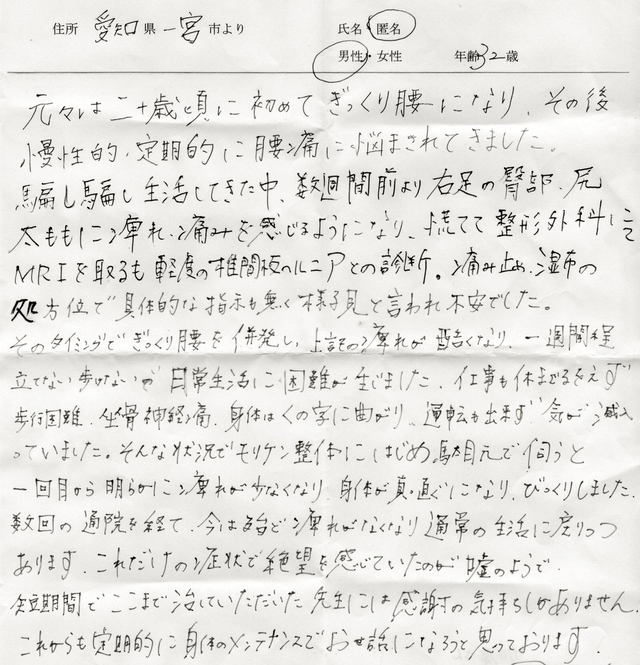 住所 愛知県 一宮市より 氏名・匿名
男性・女性 年齢32歳
元々は二十歳頃に初めてぎっくり腰になり、その後
慢性的、定期的に腰痛に悩まされてきました。
騙し騙し生活してきた中、数週間前より右足の臀部、尻
太ももに痺れ、痛みを感じるようになり、慌てて整形外科にて
MRIを取るも軽度の椎間板ヘルニアとの診断。痛み止め、湿布の
処方位で具体的な指示も無く様子見と言われ不安でした。
そのタイミングでぎっくり腰を併発し、上記の痺れが酷くなり、一週間程
立てない歩けないで日常生活に困難が生じました。仕事も休まざるをえず
歩行困難、坐骨神経痛、身体はくの字に曲がり、運転も出来ず気が滅入
っていました。そんな状況でモリケン整体にはじめ駄目元で伺うと
一回目から明らかに痺れが少なくなり、身体が真っ直ぐになり、びっくりしました。
数回の通院を経て、今は殆ど痺れがなくなり通常の生活に戻りつつ
あります。これだけの症状で絶望を感じていたのが嘘のようで、
短期間でここまで治していただいた先生には感謝の気持ちしかありません。
これからも定期的に身体のメンテナンスでお世話になろうと思っております。